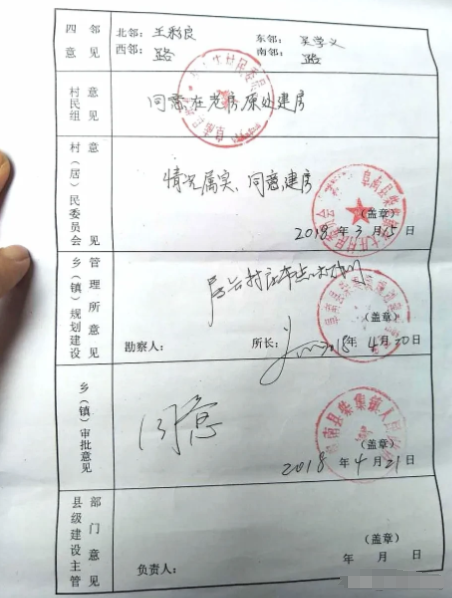 四邻意见 北邻：王彩良 东邻：吴学义
西邻：路 南邻：路
村民组意见 同意在老房原处建房
村（居）民委员会意见 情况属实、同意建房
（盖章）
2018年3月15日
乡（镇）规划建设管理所意见
（盖章）
勘察人： 所长： 18年4月20日
乡（镇）审批意见 同意
阜南县柴集镇人民
（盖章）
2018年4月21日
县级建设主管部门意见
（盖章）
负责人： 年 月 日